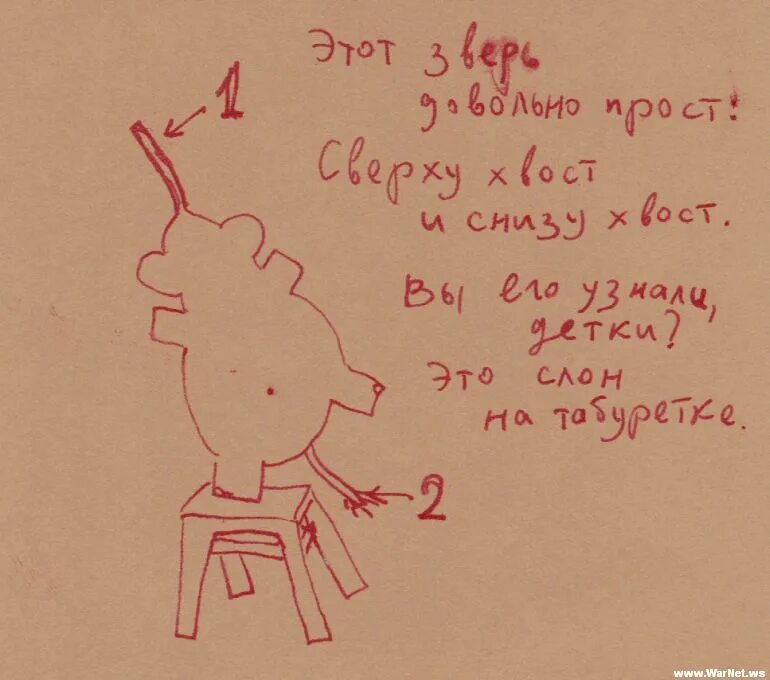 1
Этот зверь
довольно прост!
Сверху хвост
и снизу хвост.
Вы его узнали,
детки?
Это слон
на табуретке.
2
www.WarNet.ws